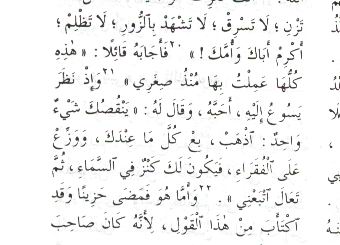 تَزْنِ؛ لَا تَسْرِقْ؛ لَا تَشْهَدْ بِالزُّورِ؛ لَا تَظْلِمْ؛
أَكْرِمْ أَبَاكَ وَأُمَّكَ! » ٢٠فَأَجَابَهُ قَائِلًا: « هٰذِهِ
كُلُّهَا عَمِلْتُ بِهَا مُنْذُ صِغَرِي » ٢١وَإِذْ نَظَرَ
يَسُوعُ إِلَيْهِ، أَحَبَّهُ، وَقَالَ لَهُ: « يَنْقُصُكَ شَيْءٌ
وَاحِدٌ: ٱذْهَبْ، بِعْ كُلَّ مَا عِنْدَكَ، وَوَزِّعْ
عَلَى ٱلْفُقَرَاءِ، فَيَكُونَ لَكَ كَنْزٌ فِي ٱلسَّمَاءِ، ثُمَّ
تَعَالَ ٱتْبَعْنِي ». ٢٢وَأَمَّا هُوَ فَمَضَى حَزِينًا وَقَدِ
ٱكْتَأَبَ مِنْ هٰذَا ٱلْقَوْلِ، لِأَنَّهُ كَانَ صَاحِبَ